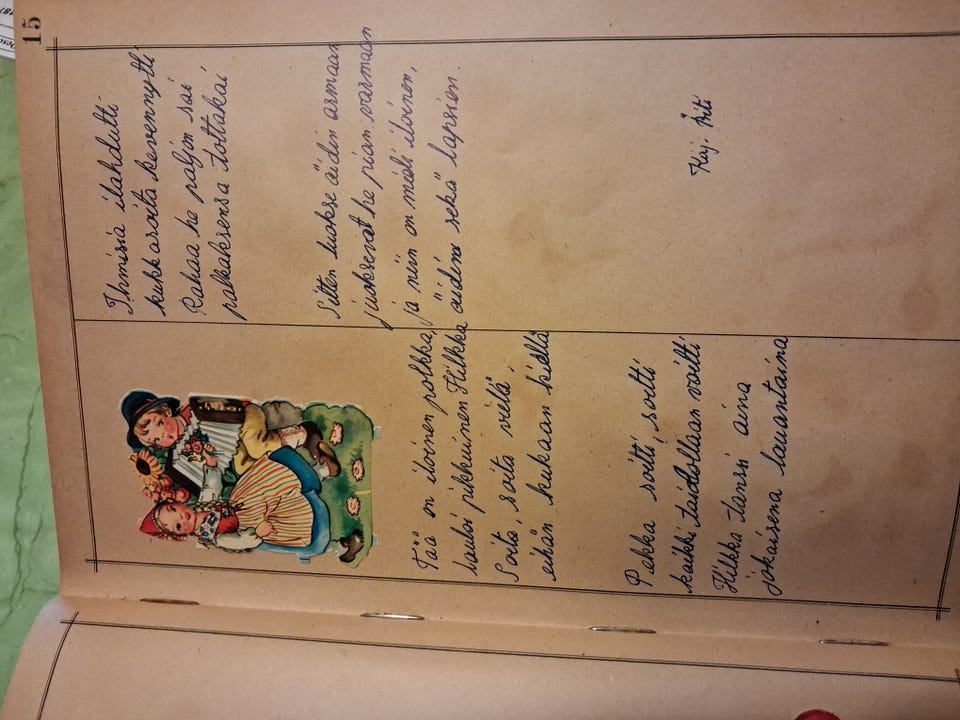 15
Tää on iloinen polkka,
lauloi pikkuinen Hilkka
Soita, soita vielä,
eihän kukaan kiellä
Pekka soitti, soitti
kaikki taidollaan voitti
Hilkka tanssi aina
jokaisena lauantaina
Ihmisiä ilahdutti
kukkaroita kevennytti
Rahaa he paljon sai
palkaksensa tottakai
Sitten luokse äidin armaan
juoksevat he pian varmaan
ja niin on mieli iloinen,
äidin sekä lapsien.
Kirj. Äiti